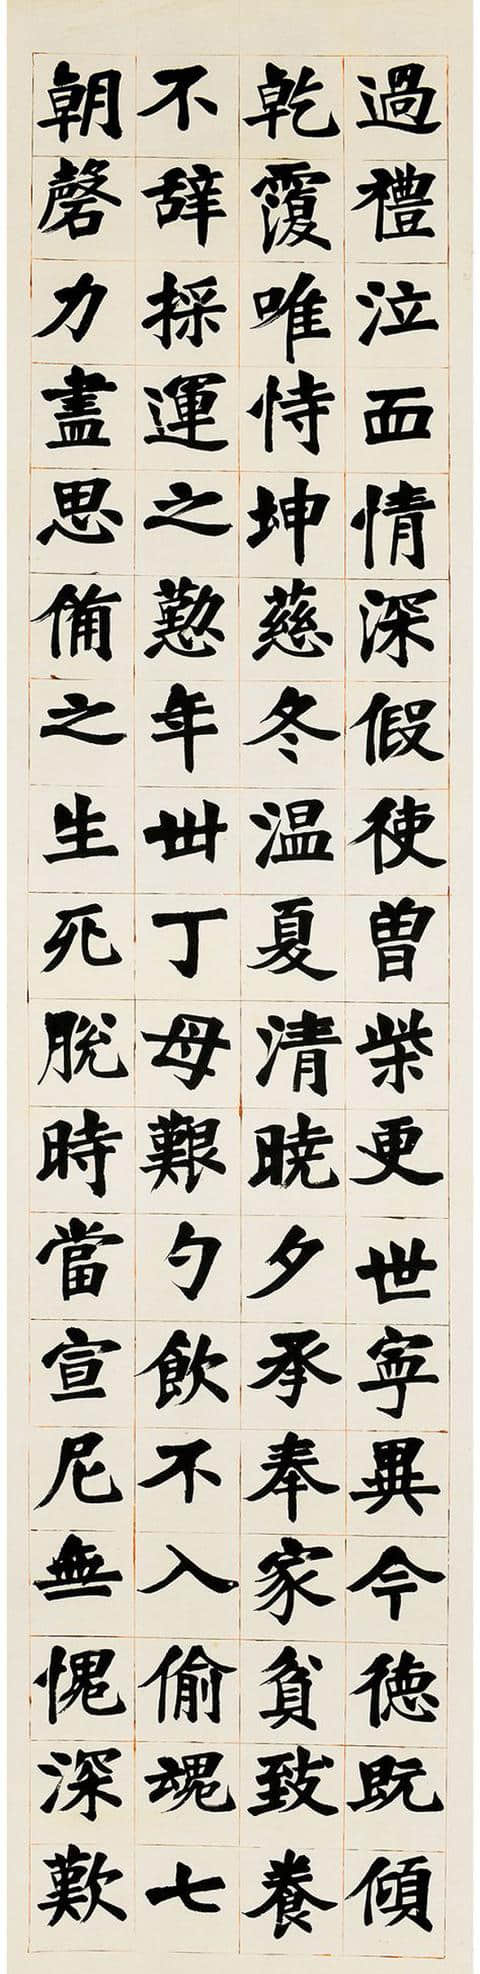 過禮泣血情深假使曾柴更世寧異今德既傾
乾覆唯恃坤慈冬温夏清曉夕承奉家貧致養
不辭採運之懃年卅丁母艱勺飲不入偷魂七
朝磬力盡思備之生死脫時當宣尼無愧深歎